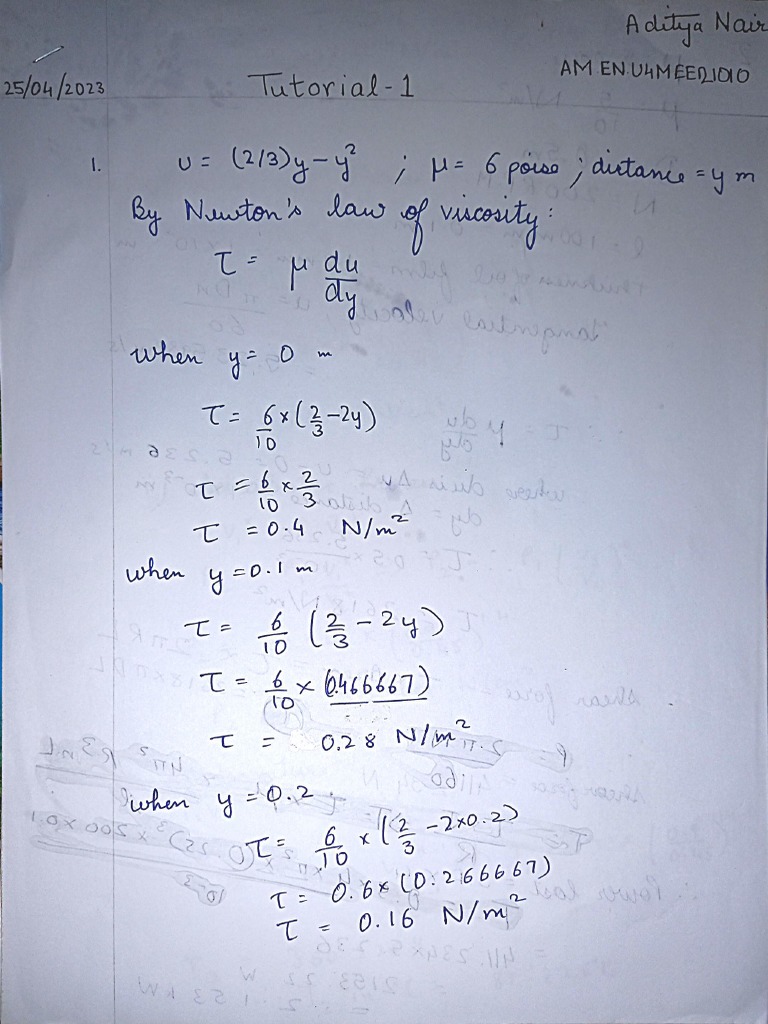 Aditya Nair
25/04/2023 Tutorial-1 AM.EN.U4MEE21010
1. u = (2/3)y - y² ; μ = 6 poise ; distance = y m
By Newton's law of viscosity:
τ = μ du/dy
when y = 0 m
τ = 6/10 × (2/3 - 2y)
τ = 6/10 × 2/3
τ = 0.4 N/m²
when y = 0.1 m
τ = 6/10 (2/3 - 2y)
τ = 6/10 × (0.466667)
τ = 0.28 N/m²
when y = 0.2
τ = 6/10 × (2/3 - 2×0.2)
τ = 0.6 × (0.266667)
τ = 0.16 N/m²